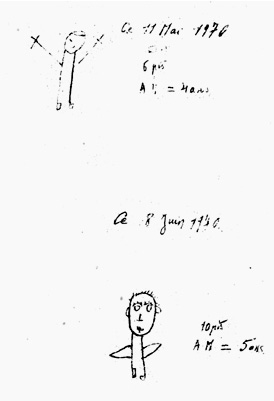 Ce 11 Mai 1976
6 pts
AM = 4 ans
Ce 8 Juin
10 pts
AM = 5 ans